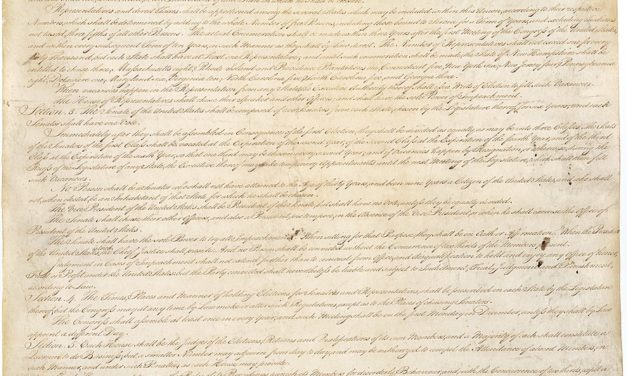 Representatives and direct Taxes shall be apportioned among the several States which may be included within this Union, according to their respective
Numbers, which shall be determined by adding to the whole Number of free Persons, including those bound to Service for a Term of Years, and excluding Indians
not taxed, three fifths of all other Persons. The actual Enumeration shall be made within three Years after the first Meeting of the Congress of the United States,
and within every subsequent Term of ten Years, in such Manner as they shall by Law direct. The Number of Representatives shall not exceed one for every
thirty Thousand, but each State shall have at Least one Representative; and until such enumeration shall be made, the State of New Hampshire shall be
entitled to chuse three, Massachusetts eight, Rhode-Island and Providence Plantations one, Connecticut five, New-York six, New Jersey four, Pennsylvania
eight, Delaware one, Maryland six, Virginia ten, North Carolina five, South Carolina five, and Georgia three.
When vacancies happen in the Representation from any State, the Executive Authority thereof shall issue Writs of Election to fill such Vacancies.
The House of Representatives shall chuse their Speaker and other Officers; and shall have the sole Power of Impeachment.
Section. 3. The Senate of the United States shall be composed of two Senators from each State, chosen by the Legislature thereof, for six Years; and each
Senator shall have one Vote.
Immediately after they shall be assembled in Consequence of the first Election, they shall be divided as equally as may be into three Classes. The Seats
of the Senators of the first Class shall be vacated at the Expiration of the second Year, of the second Class at the Expiration of the fourth Year, and of the third
Class at the Expiration of the sixth Year, so that one third may be chosen every second Year; and if Vacancies happen by Resignation, or otherwise, during the
Recess of the Legislature of any State, the Executive thereof may make temporary Appointments until the next Meeting of the Legislature, which shall then fill
such Vacancies.
No Person shall be a Senator who shall not have attained to the Age of thirty Years, and been nine Years a Citizen of the United States, and who shall
not, when elected, be an Inhabitant of that State for which he shall be chosen.
The Vice President of the United States shall be President of the Senate, but shall have no Vote, unless they be equally divided.
The Senate shall chuse their other Officers, and also a President pro tempore, in the Absence of the Vice President, or when he shall exercise the Office of
President of the United States.
The Senate shall have the sole Power to try all Impeachments. When sitting for that Purpose, they shall be on Oath or Affirmation. When the President
of the United States is tried, the Chief Justice shall preside: And no Person shall be convicted without the Concurrence of two thirds of the Members present.
Judgment in Cases of Impeachment shall not extend further than to removal from Office, and disqualification to hold and enjoy any Office of honor,
Trust or Profit under the United States: but the Party convicted shall nevertheless be liable and subject to Indictment, Trial, Judgment and Punishment,
according to Law.
Section. 4. The Times, Places and Manner of holding Elections for Senators and Representatives, shall be prescribed in each State by the Legislature
thereof; but the Congress may at any time by Law make or alter such Regulations, except as to the Places of chusing Senators.
The Congress shall assemble at least once in every Year, and such Meeting shall be on the first Monday in December, unless they shall by Law
appoint a different Day.
Section. 5. Each House shall be the Judge of the Elections, Returns and Qualifications of its own Members, and a Majority of each shall constitute a
Quorum to do Business; but a smaller Number may adjourn from day to day, and may be authorized to compel the Attendance of absent Members, in
such Manner, and under such Penalties as each House may provide.